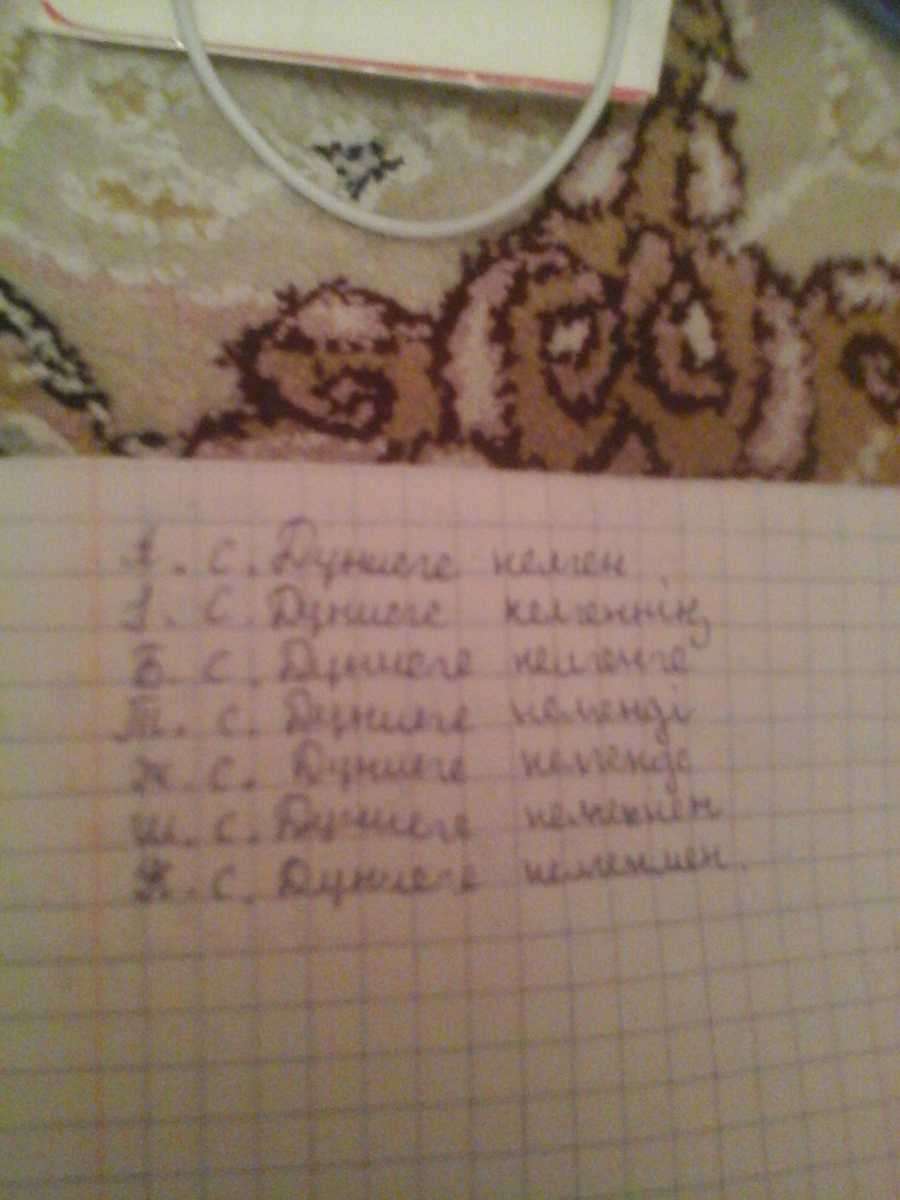 А. С. Дүниеге келген
І. С. Дүниеге келгеннің
Б. С. Дүниеге келгенге
Т. С. Дүниеге келгенді
Ж. С. Дүниеге келгенде
Ш. С. Дүниеге келгеннен
К. С. Дүниеге келгенмен.